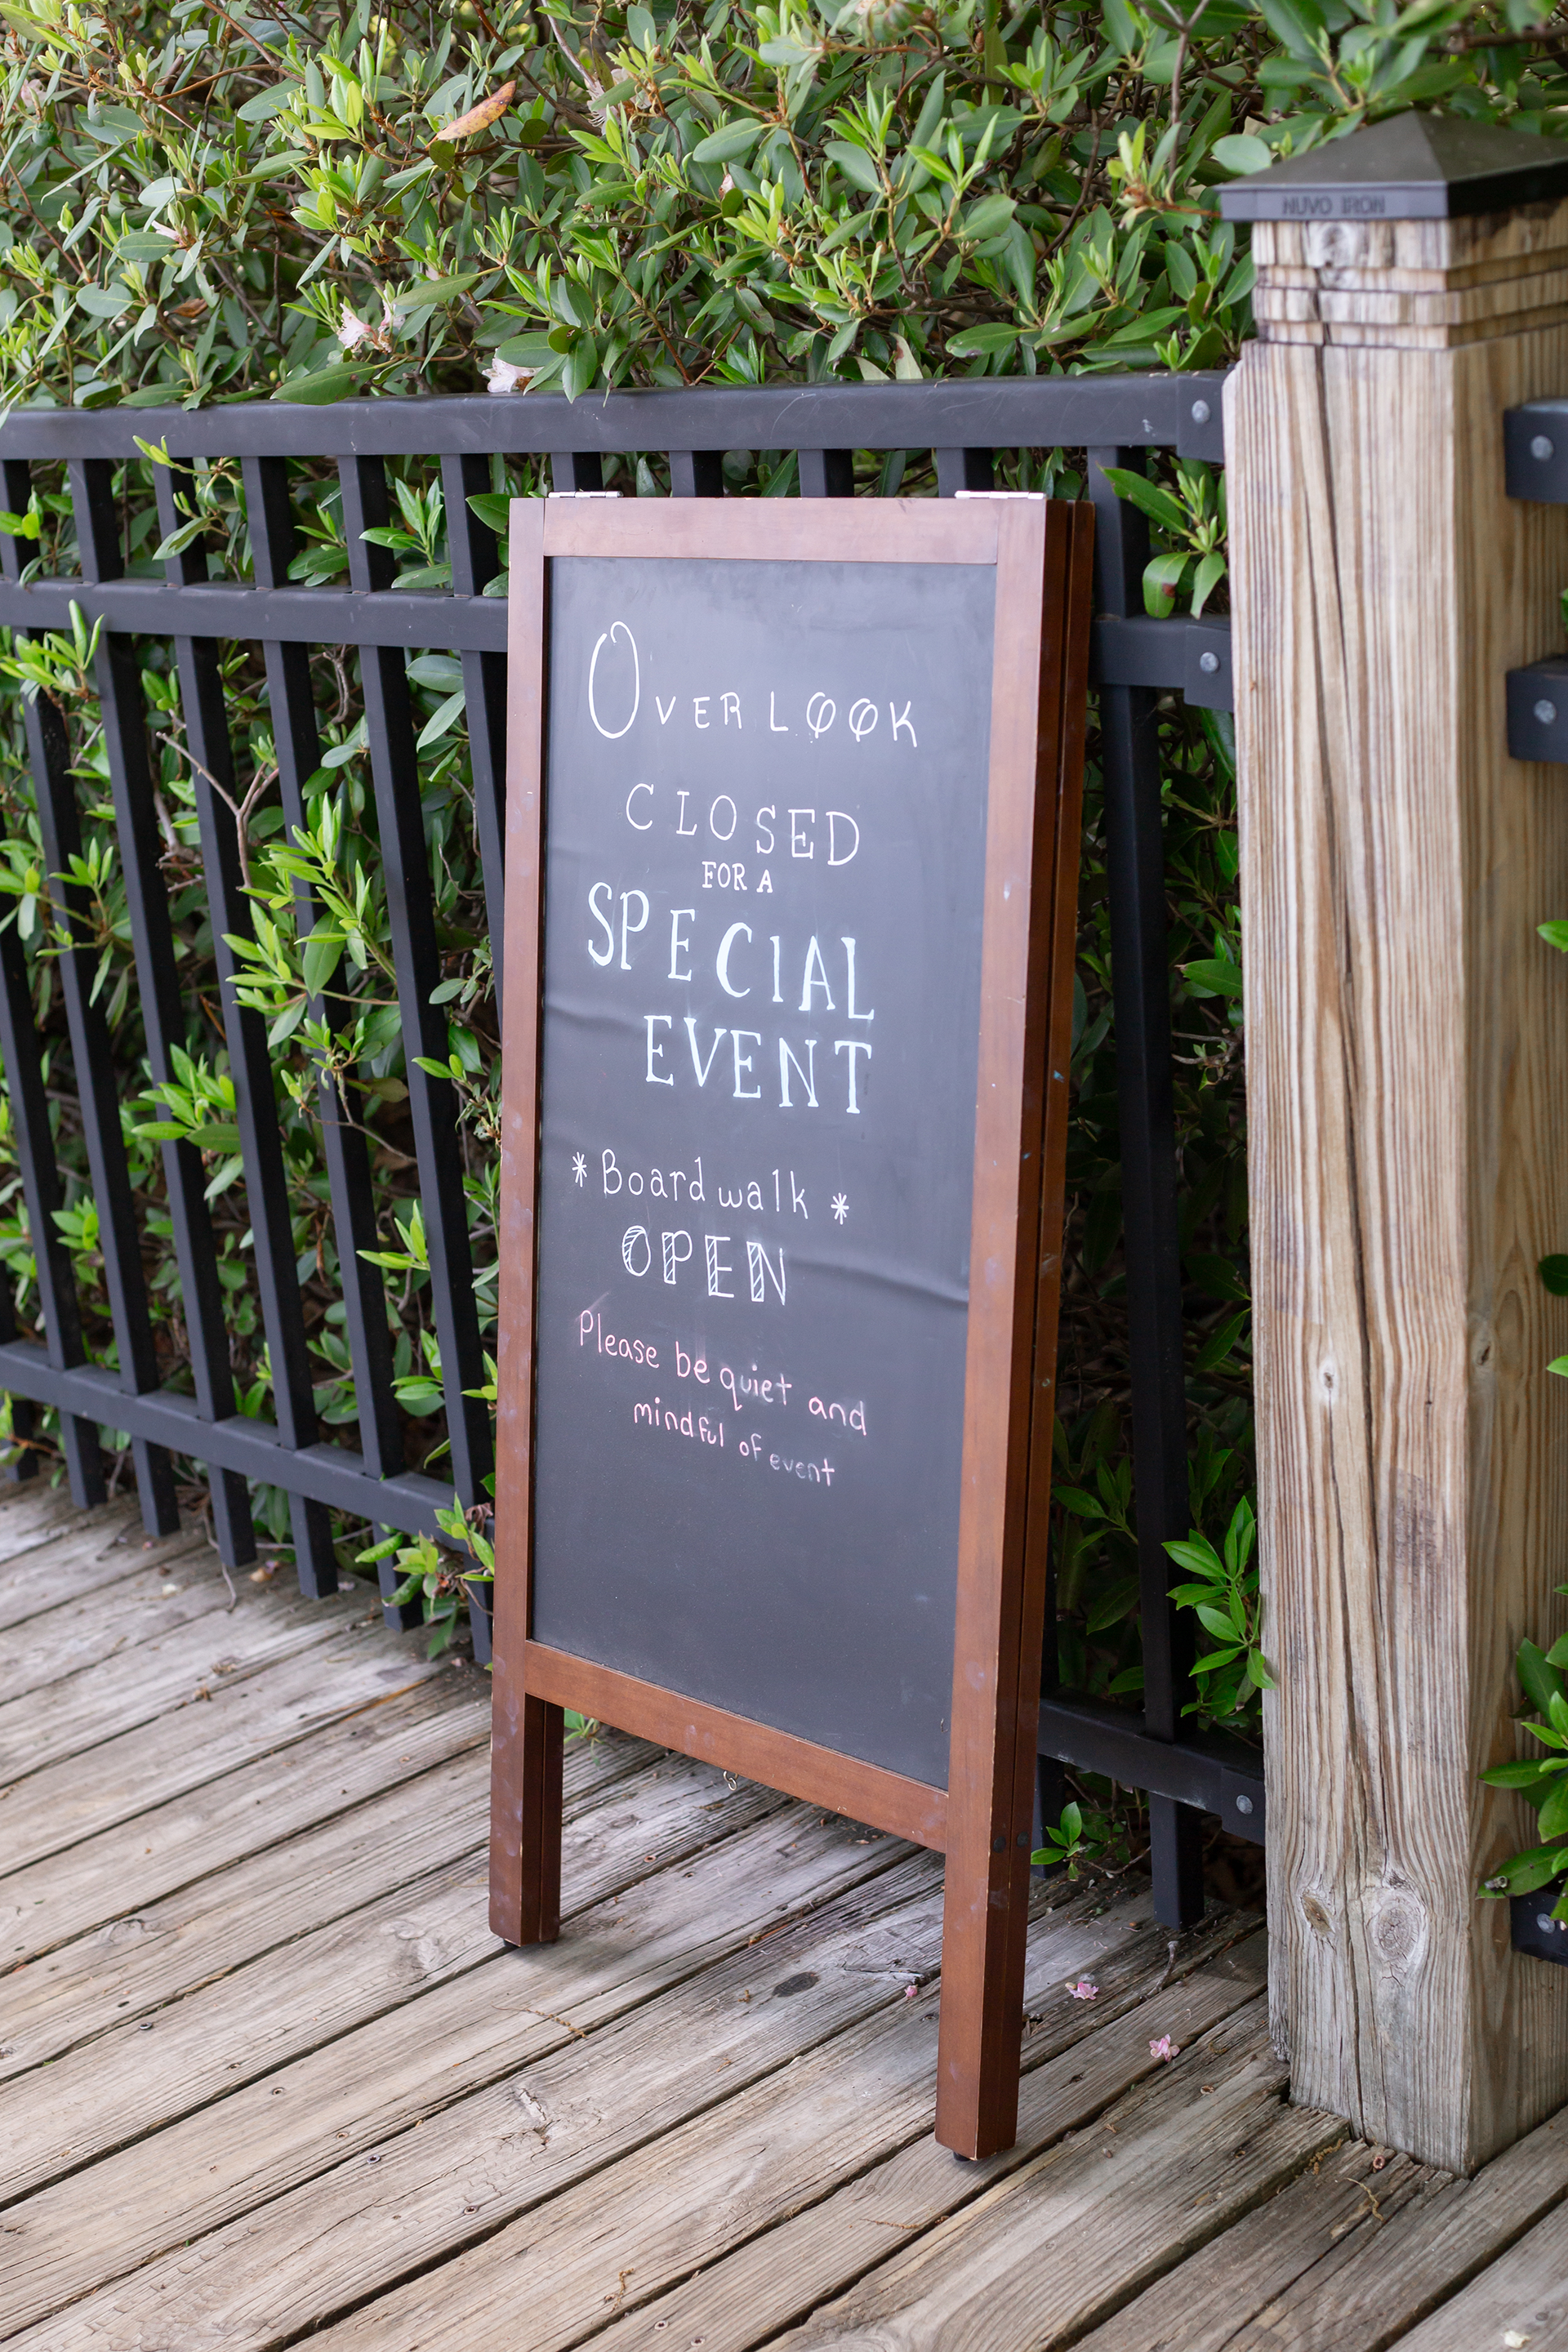 NUVO IRON
OVERLOOK
CLOSED
FOR A
SPECIAL
EVENT
* Boardwalk *
OPEN
Please be quiet and
mindful of event